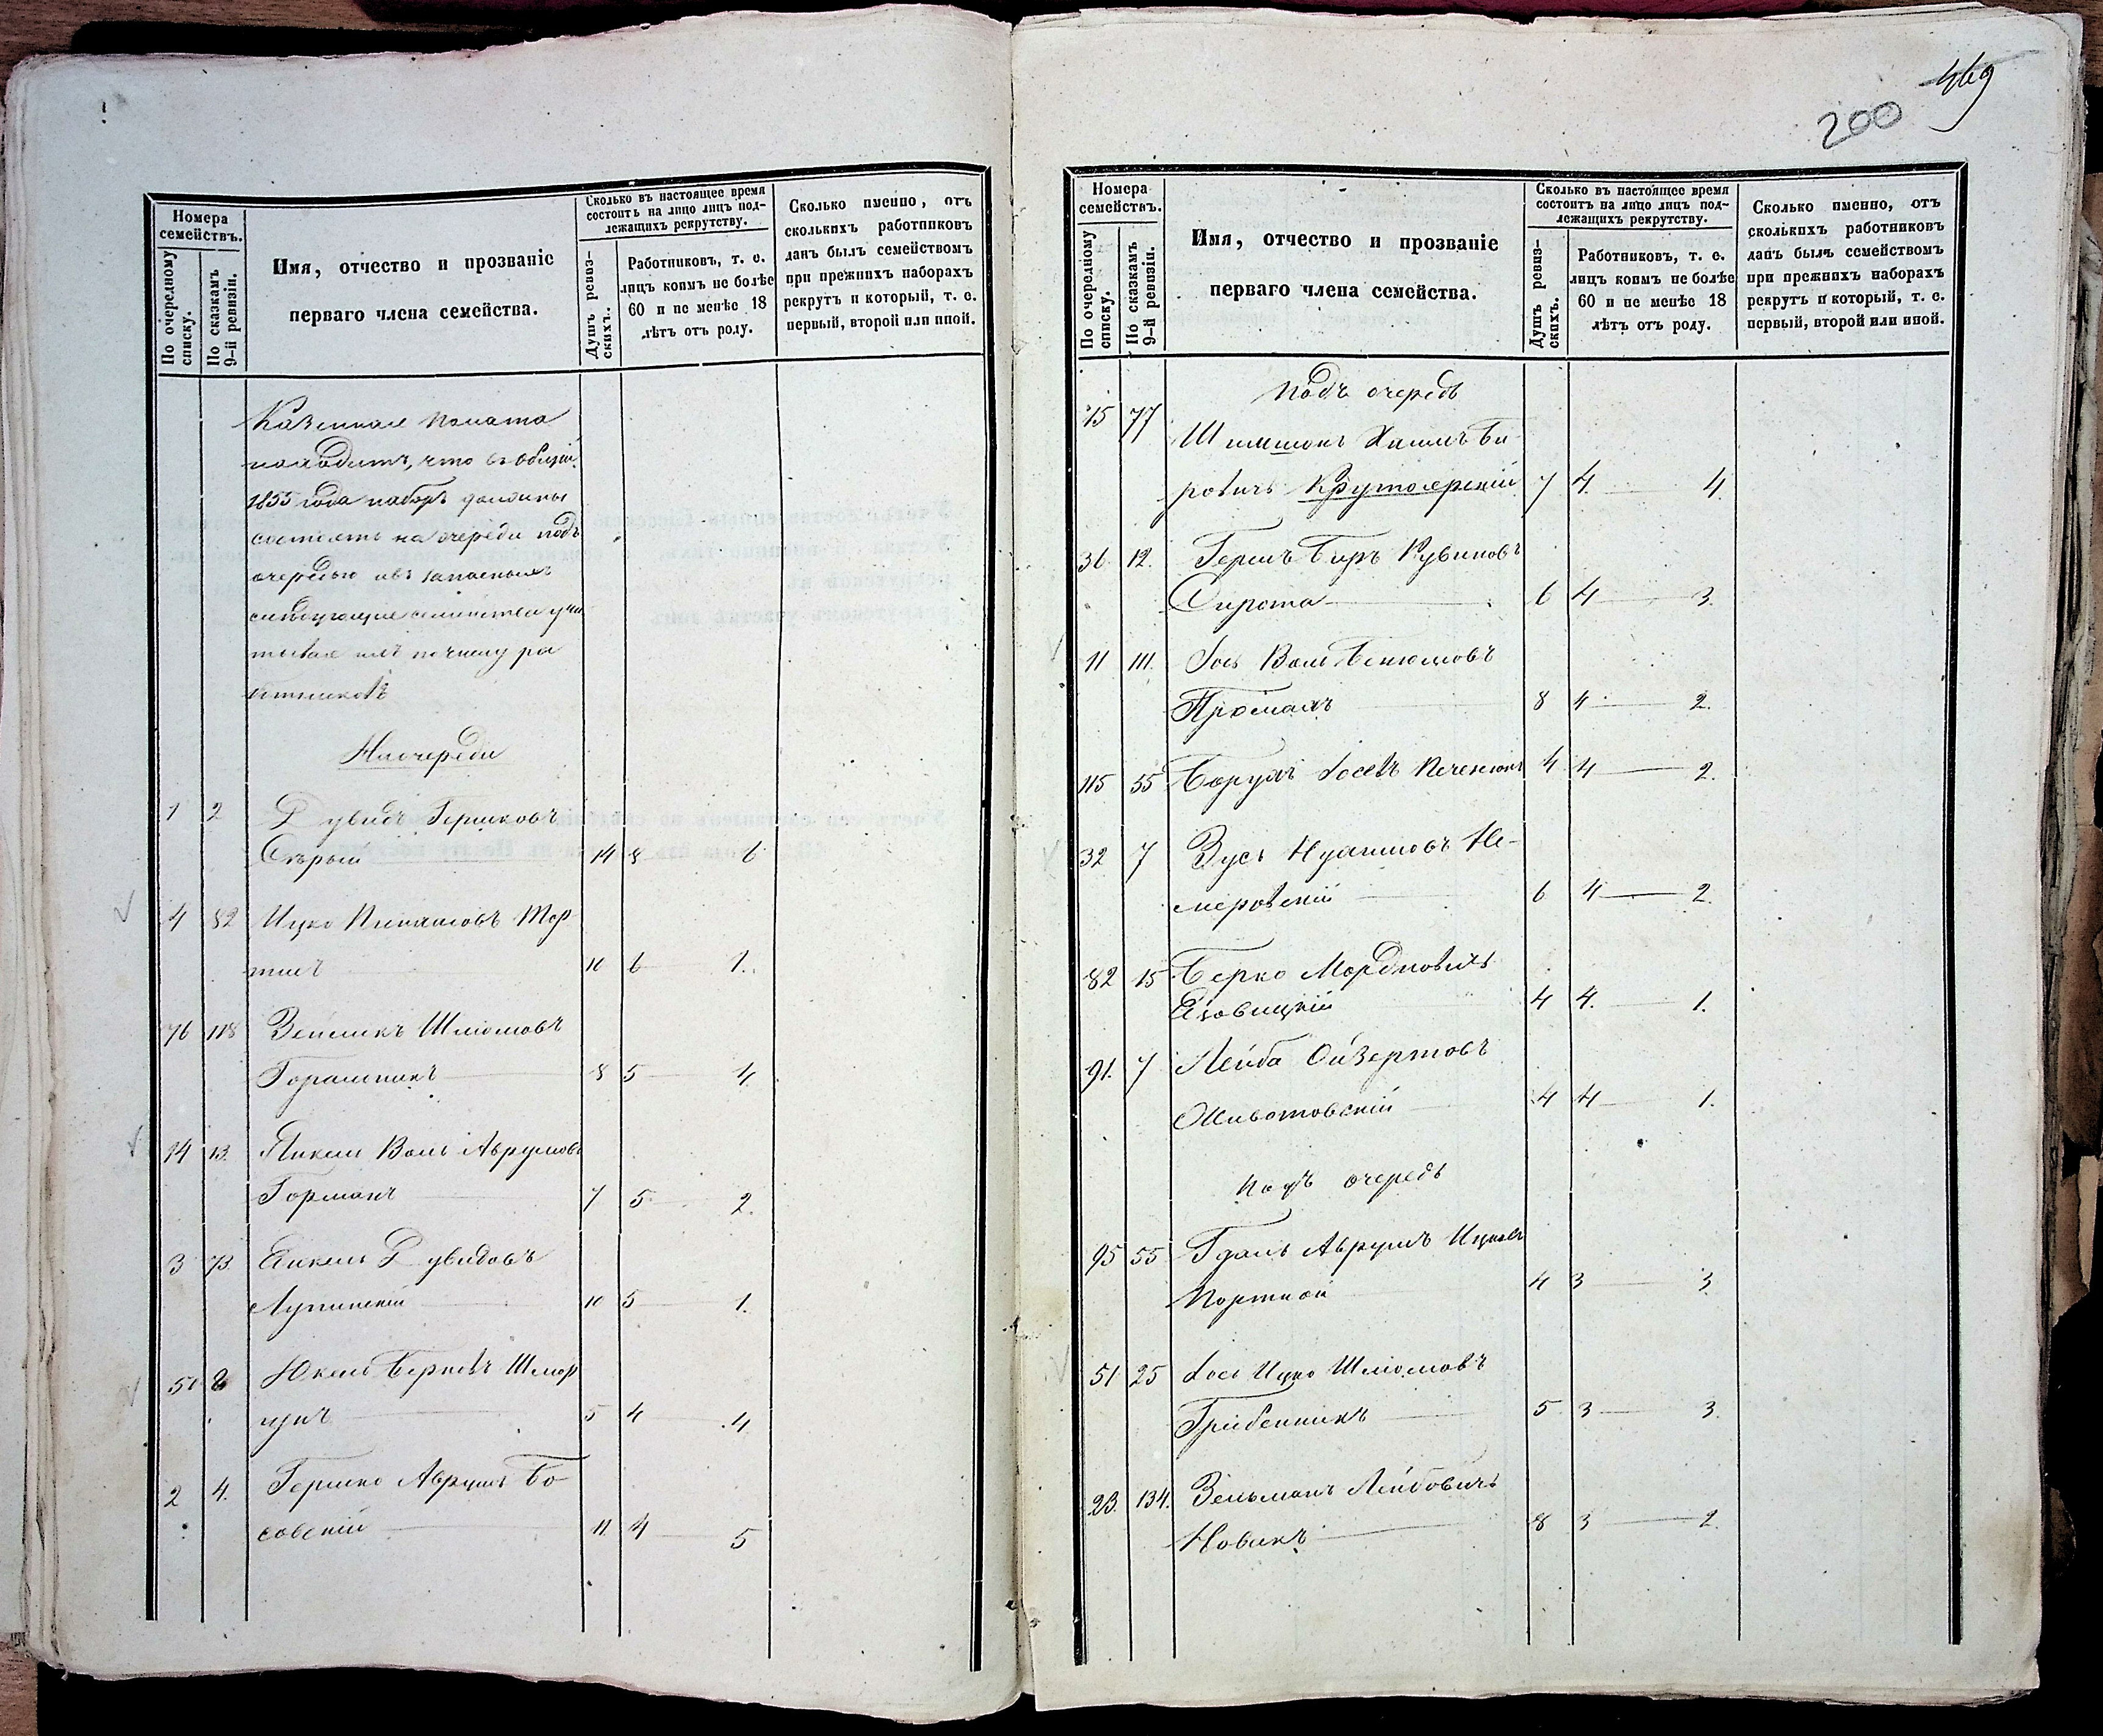 Номера семействъ.
По очередному списку.
По сказкамъ 9-й ревизіи.
Имя, отчество и прозваніе
перваго члена семейства.
Сколько въ настоящее время
состоитъ на лицо лицъ под-
лежащихъ рекрутству.
Душъ ревиз-
скихъ.
Работниковъ, т. е.
лицъ коимъ не болѣе
60 и не менѣе 18
лѣтъ отъ роду.
Сколько именно, отъ
сколькихъ работниковъ
данъ былъ семействомъ
при прежнихъ наборахъ
рекрутъ и который, т. е.
первый, второй или иной.
Казенная Палата
находитъ, что въ
1855 года наборъ должны
состоять на очереди подъ
очередью изъ запасныхъ
слѣдующіе семейства
по числу ра
ботниковъ
На очереди
1 2 Дувидъ Гершковъ
Сѣрый 14 8 6
4 82 Ицко Пинхасовъ Тор
10 6 1.
76 118 Зейликъ Шліомовъ
Горашникъ 8 5 4
14 13. Янкель Волъ Аврумовъ
Горманъ 7 5 2.
3 73 Янкель Дувидовъ
Лупинскій 10 5 1.
51 8 Юкель Берковъ Шмор
5 4 4
2 4. Гершко Аврумъ Бо-
совскій 11. 4 5
469
200
Номера
семействъ.
По очередному
списку.
По сказкамъ
9-й ревизіи.
Имя, отчество и прозваніе
перваго члена семейства.
Сколько въ настоящее время
состоитъ на лицо лицъ под-
лежащихъ рекрутству.
Душъ ревиз-
скихъ.
Работниковъ, т. е.
лицъ коимъ не болѣе
60 и не менѣе 18
лѣтъ отъ роду.
Сколько именно, отъ
сколькихъ работниковъ
данъ былъ семействомъ
при прежнихъ наборахъ
рекрутъ и который, т. е.
первый, второй или иной.
Подъ очередь
15 77 Шимшонъ Хаимъ Бе-
ровичъ Крутоярскій 7 4. 4.
36 12. Гершъ Беръ Рувиновъ
Сирота 6 4 3.
11 111. Іось Волъ Бенюмовъ
8 4 2.
115 55 Борухъ Іосевъ Печенюкъ 4 4 2.
32 7 Зусь Нухимовъ Не-
меровскій 6 4 2.
82 15 Берко Мордковичъ
4 4. 1.
91. 7 Лейба Ойзеровъ
Животовскій 4 4 1.
Подъ очередь
95 55 Гдаль Аврумъ Ицковъ
Портной 4 3 3
51 25 Іось Ицко Шліомовъ
Гребенникъ 5 3 3.
23. 134. Зельманъ Лейбовичъ
Новакъ 8 3 2.